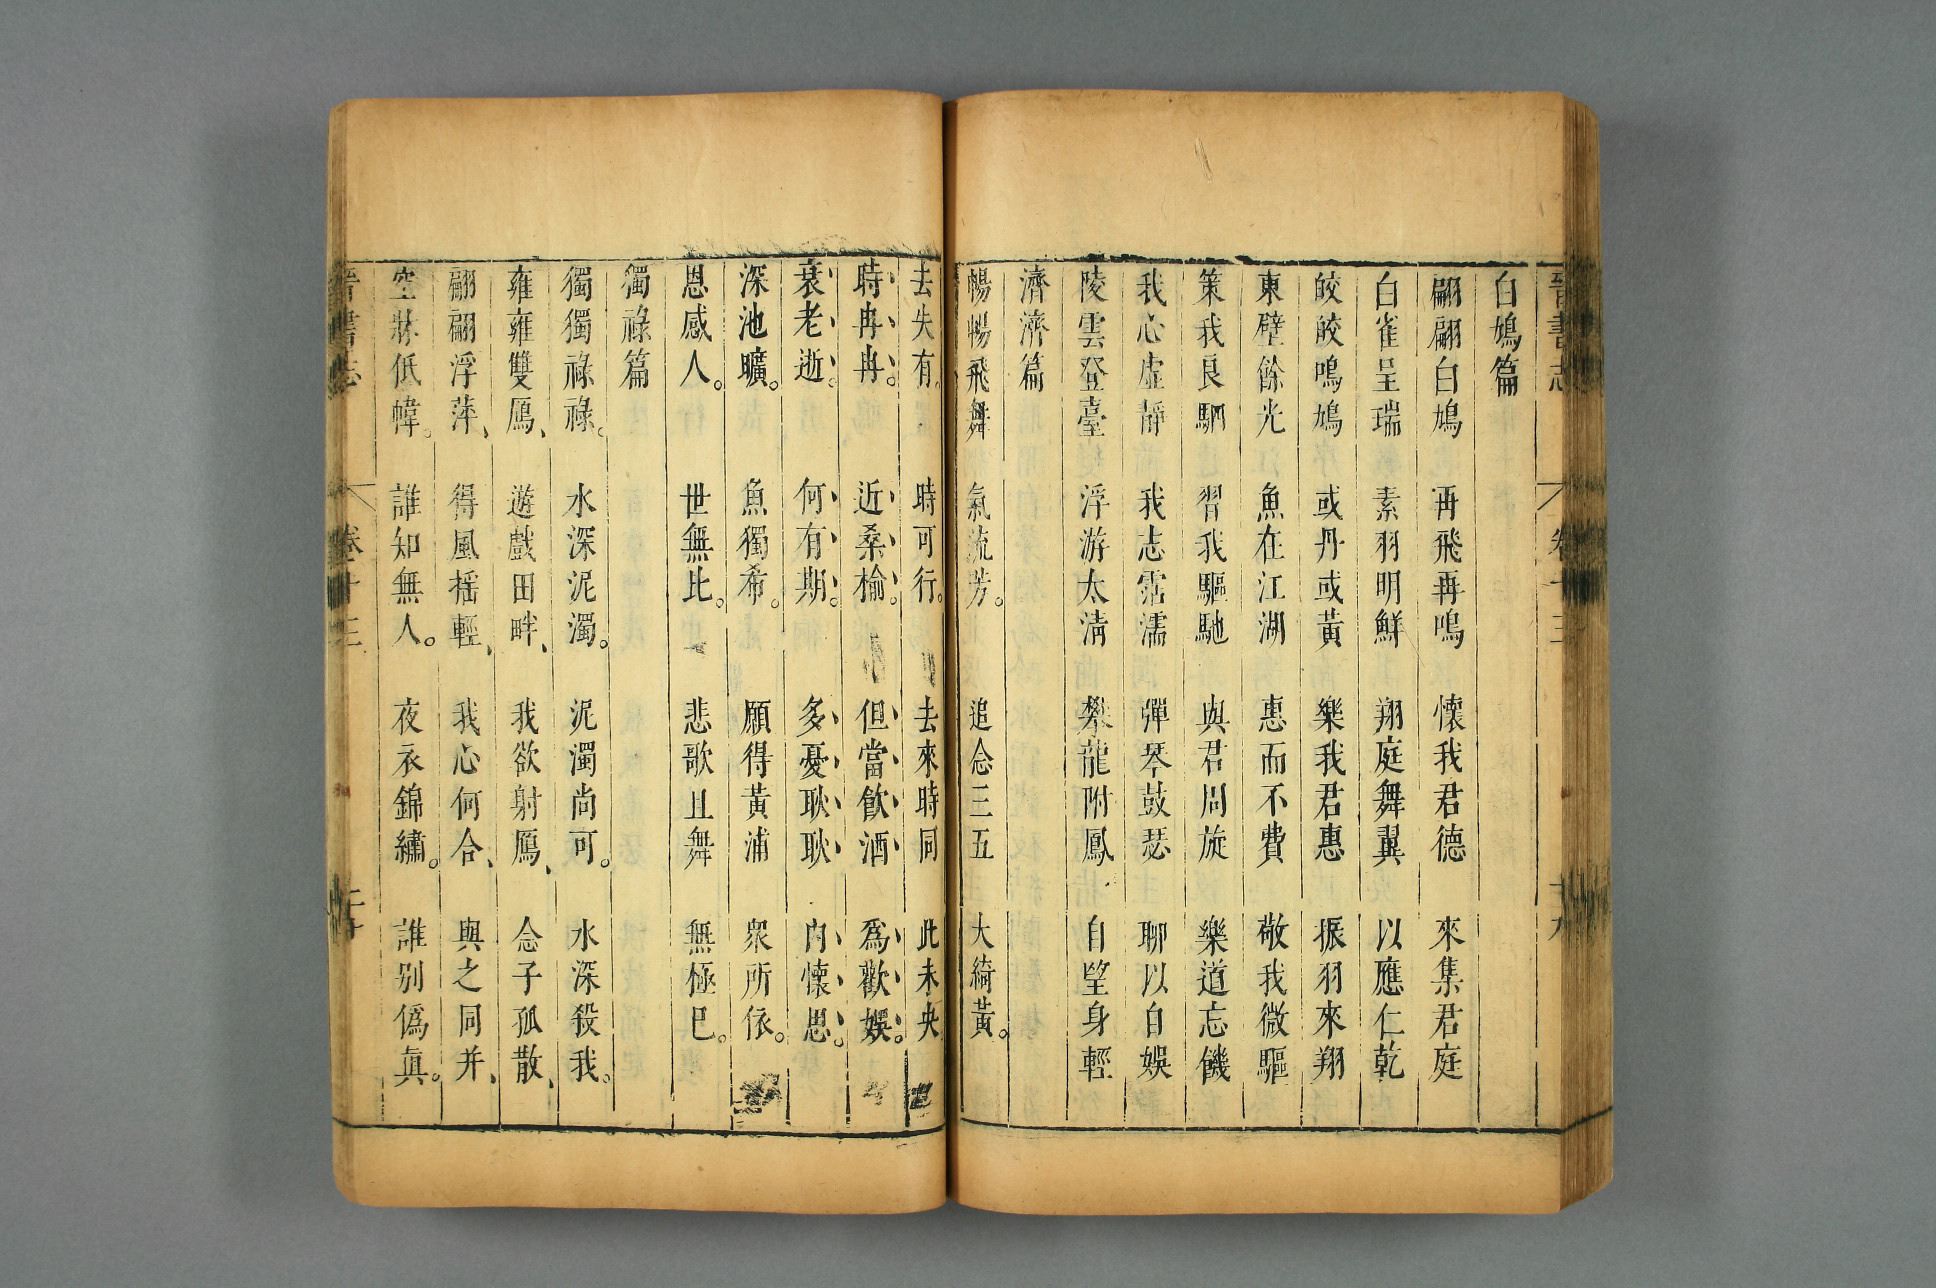 晉書志 卷十三 十九
白鳩篇
翩翩白鳩 再飛再鳴 懷我君德 來集君庭
白雀呈瑞 素羽明鮮 翔庭舞翼 以應仁乾
皎皎鳴鳩 或丹或黃 樂我君惠 振羽來翔
東壁餘光 魚在江湖 惠而不費 敬我微驅
策我良駟 習我驅馳 與君周旋 樂道忘饑
我心虛靜 我志霑濡 彈琴鼓瑟 聊以自娛
陵雲登臺 浮游太清 攀龍附鳳 自望身輕
濟濟篇
暢暢飛舞 氣流芳。 追念三五 大綺黃。
去失有。 時可行。 去來時同 此未央
時冉冉。 近桑榆。 但當飲酒 爲歡娛。
衰老逝。 何有期。 多憂耿耿 內懷思。
深池曠。 魚獨希。 願得黃浦 衆所依。
恩感人。 世無比。 悲歌且舞 無極已。
獨祿篇
獨獨祿祿。 水深泥濁。 泥濁尚可。 水深殺我。
雍雍雙鴈、 遊戲田畔、 我欲射鴈、 念子孤散、
翩翩浮萍、 得風摇輕、 我心何合、 與之同并、
空牀低幃。 誰知無人。 夜衣錦繡。 誰別僞眞。
晉書志 卷十三